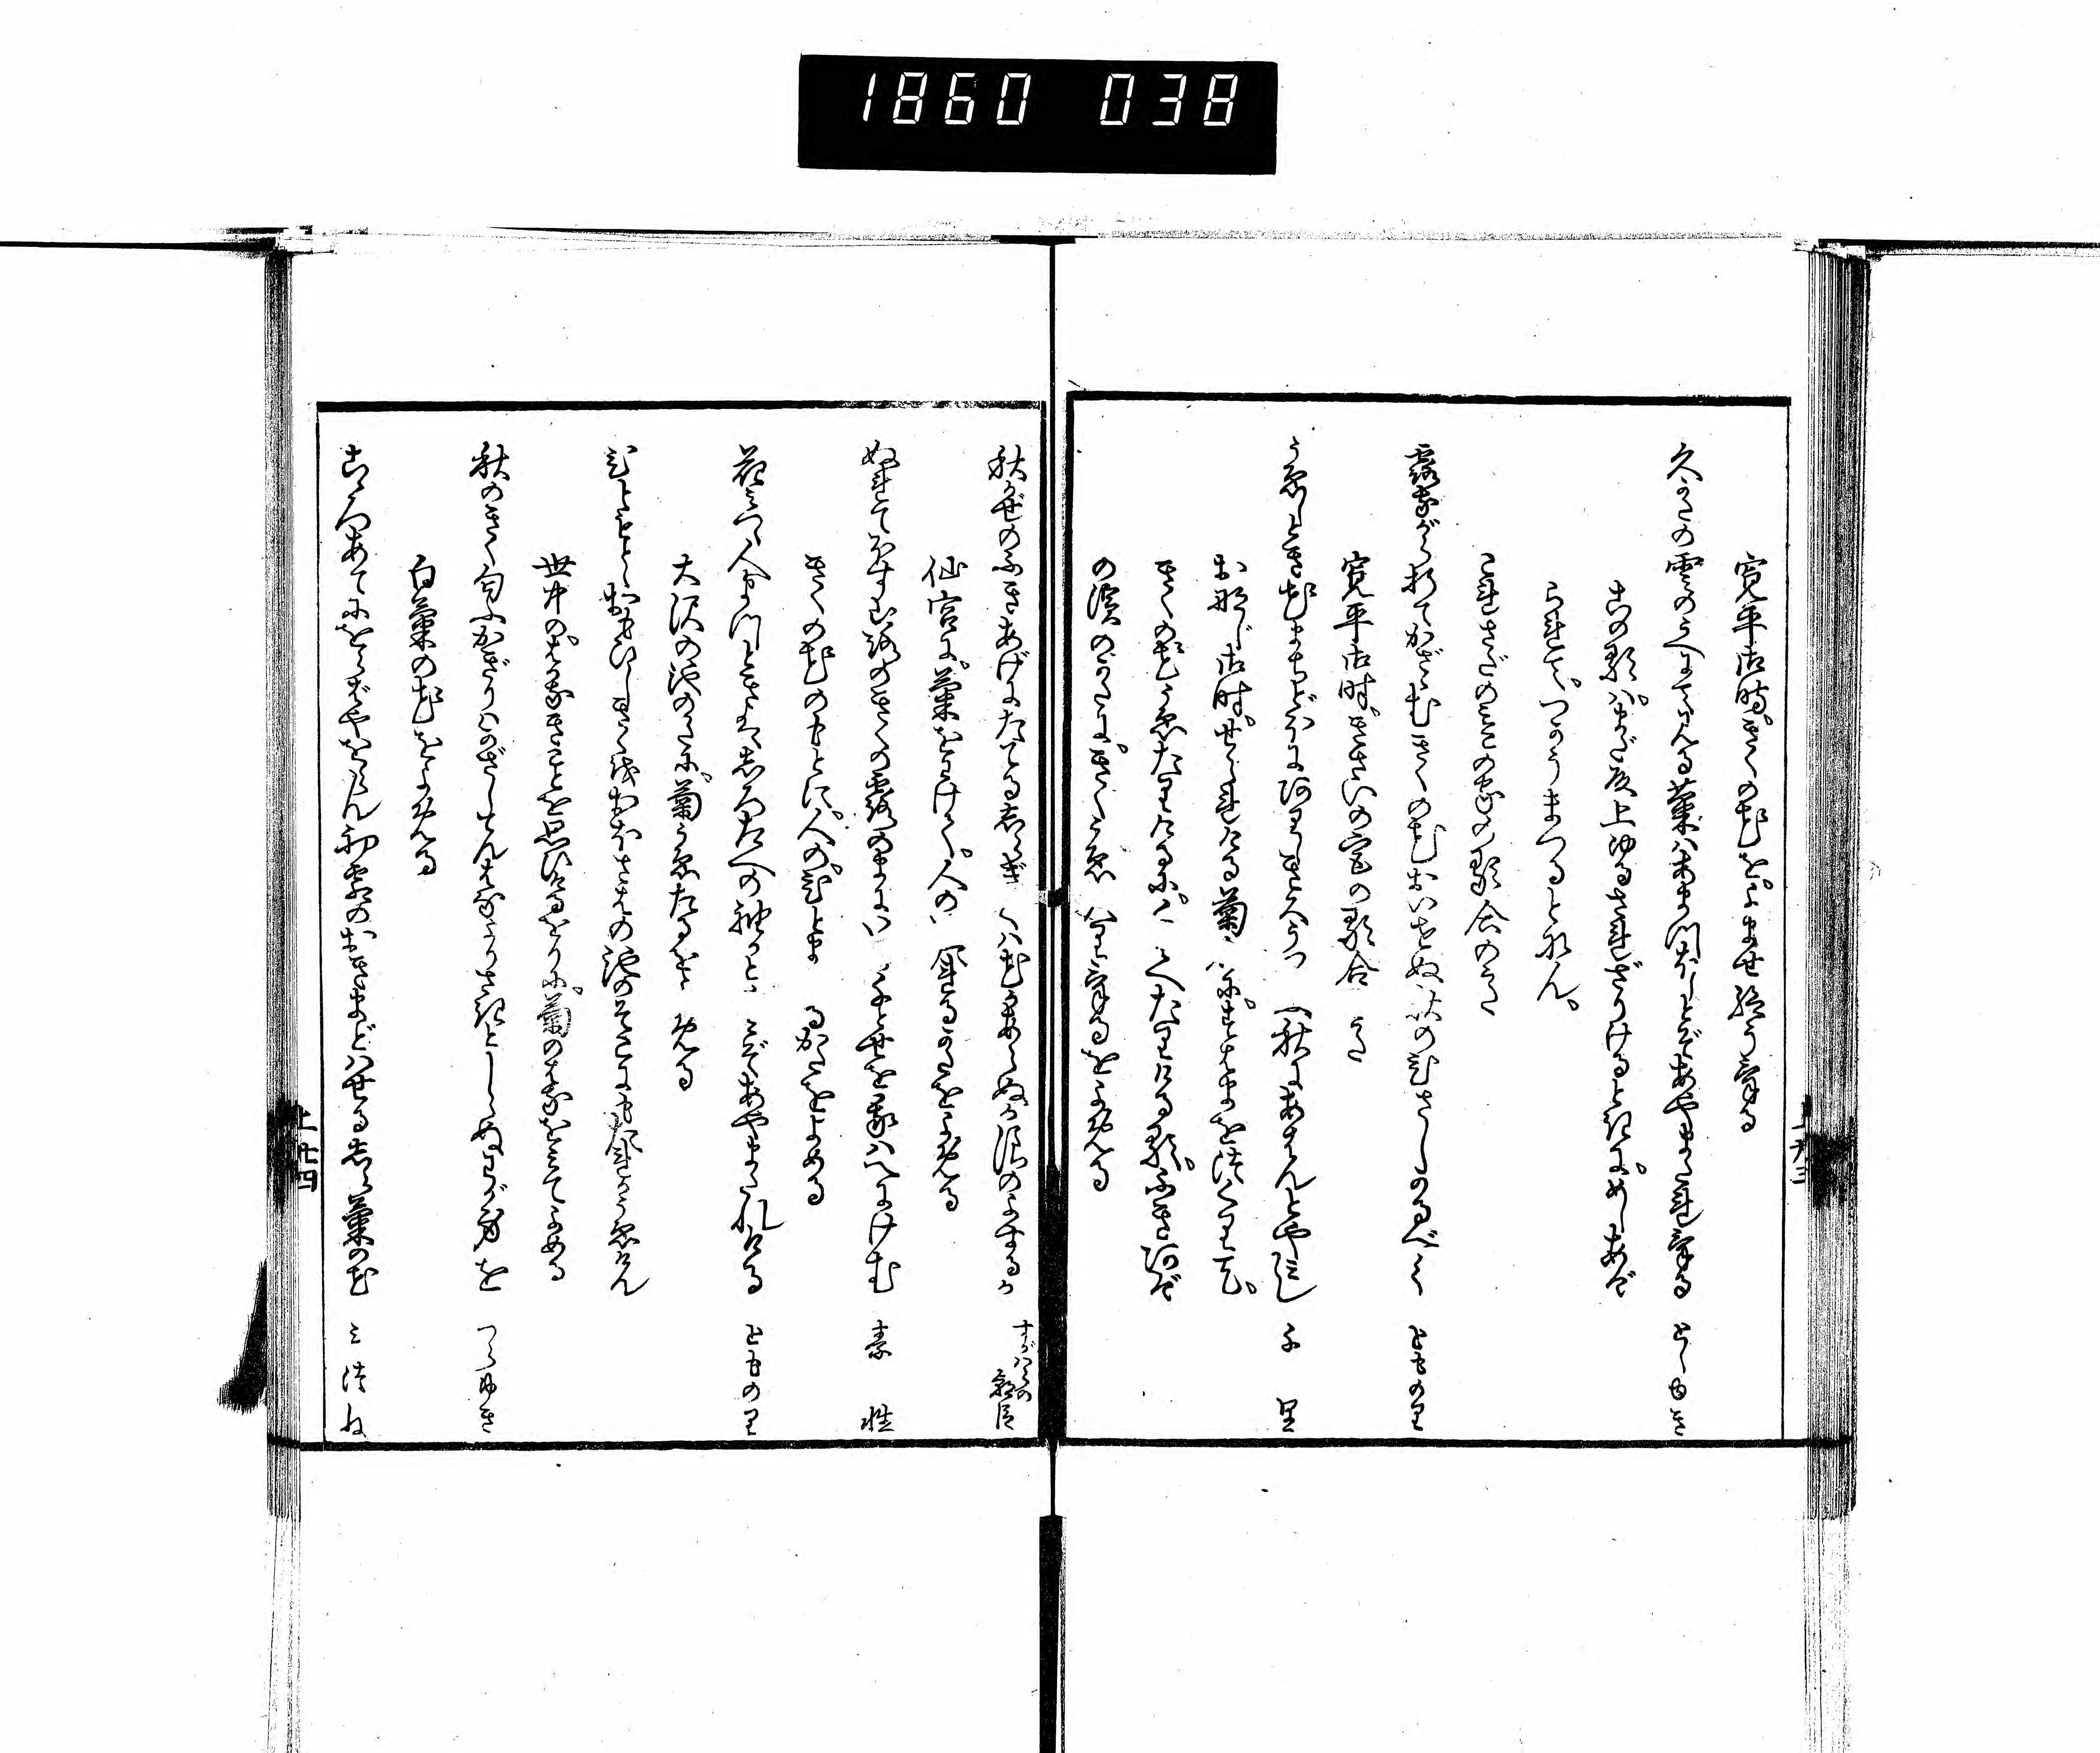 1860 038
寛平御時。きくの花を。よませ給うける
久かたの雲のうへにてみる菊はあまつほしとぞあやまたれける としゆき
この歌は。まだ殿上ゆるされざりけるときに。めしあげ
られて。つかうまつるとなん。
これさだのみこの家の歌合のうた
露ながら折てかざゝむきくの花おいせぬ秋のひさしかるべく とものり
寛平御時。きさいの宮の歌合 うた
うゑしとき花まちどほに有しきくうつ ふ秋にあはんとや見し 千里
おなじ御時。せられける菊 はに。すはまを
きくの花うゑたりけるに。く へたりける歌。ふきあげ
の濱のかたに。きくうゑ りけるをよめる
秋かぜのふきあげにたてるしらぎくは花かあらぬか浪のよするか すがはらの朝臣
仙宮に。菊をわけて。人の たるかたをよめる
ぬれてほす山路のきくの露のまに 千とせを我はへにけむ 素性
きくの花のもとに。人の。ひとま るかたをよめる
花みつゝ人まつときはしろたへの袖かと のみぞあやまたれける とものり
大沢の池のかたに。菊うゑたるを よめる
ひともとゝおもひしきくをおほさはの池のそこにもたれかうゑけん
世中の。はかなきことを思ひけるをりに。菊のはなをみてよめる
秋のきく匂ふかぎりはかざしてんはなよりさきとしらぬわが身を つらゆき
白菊の花をよめる
こゝろあてにをらばやをらん初霜のおきまどはせるしら菊の花 みつね
上 廿四